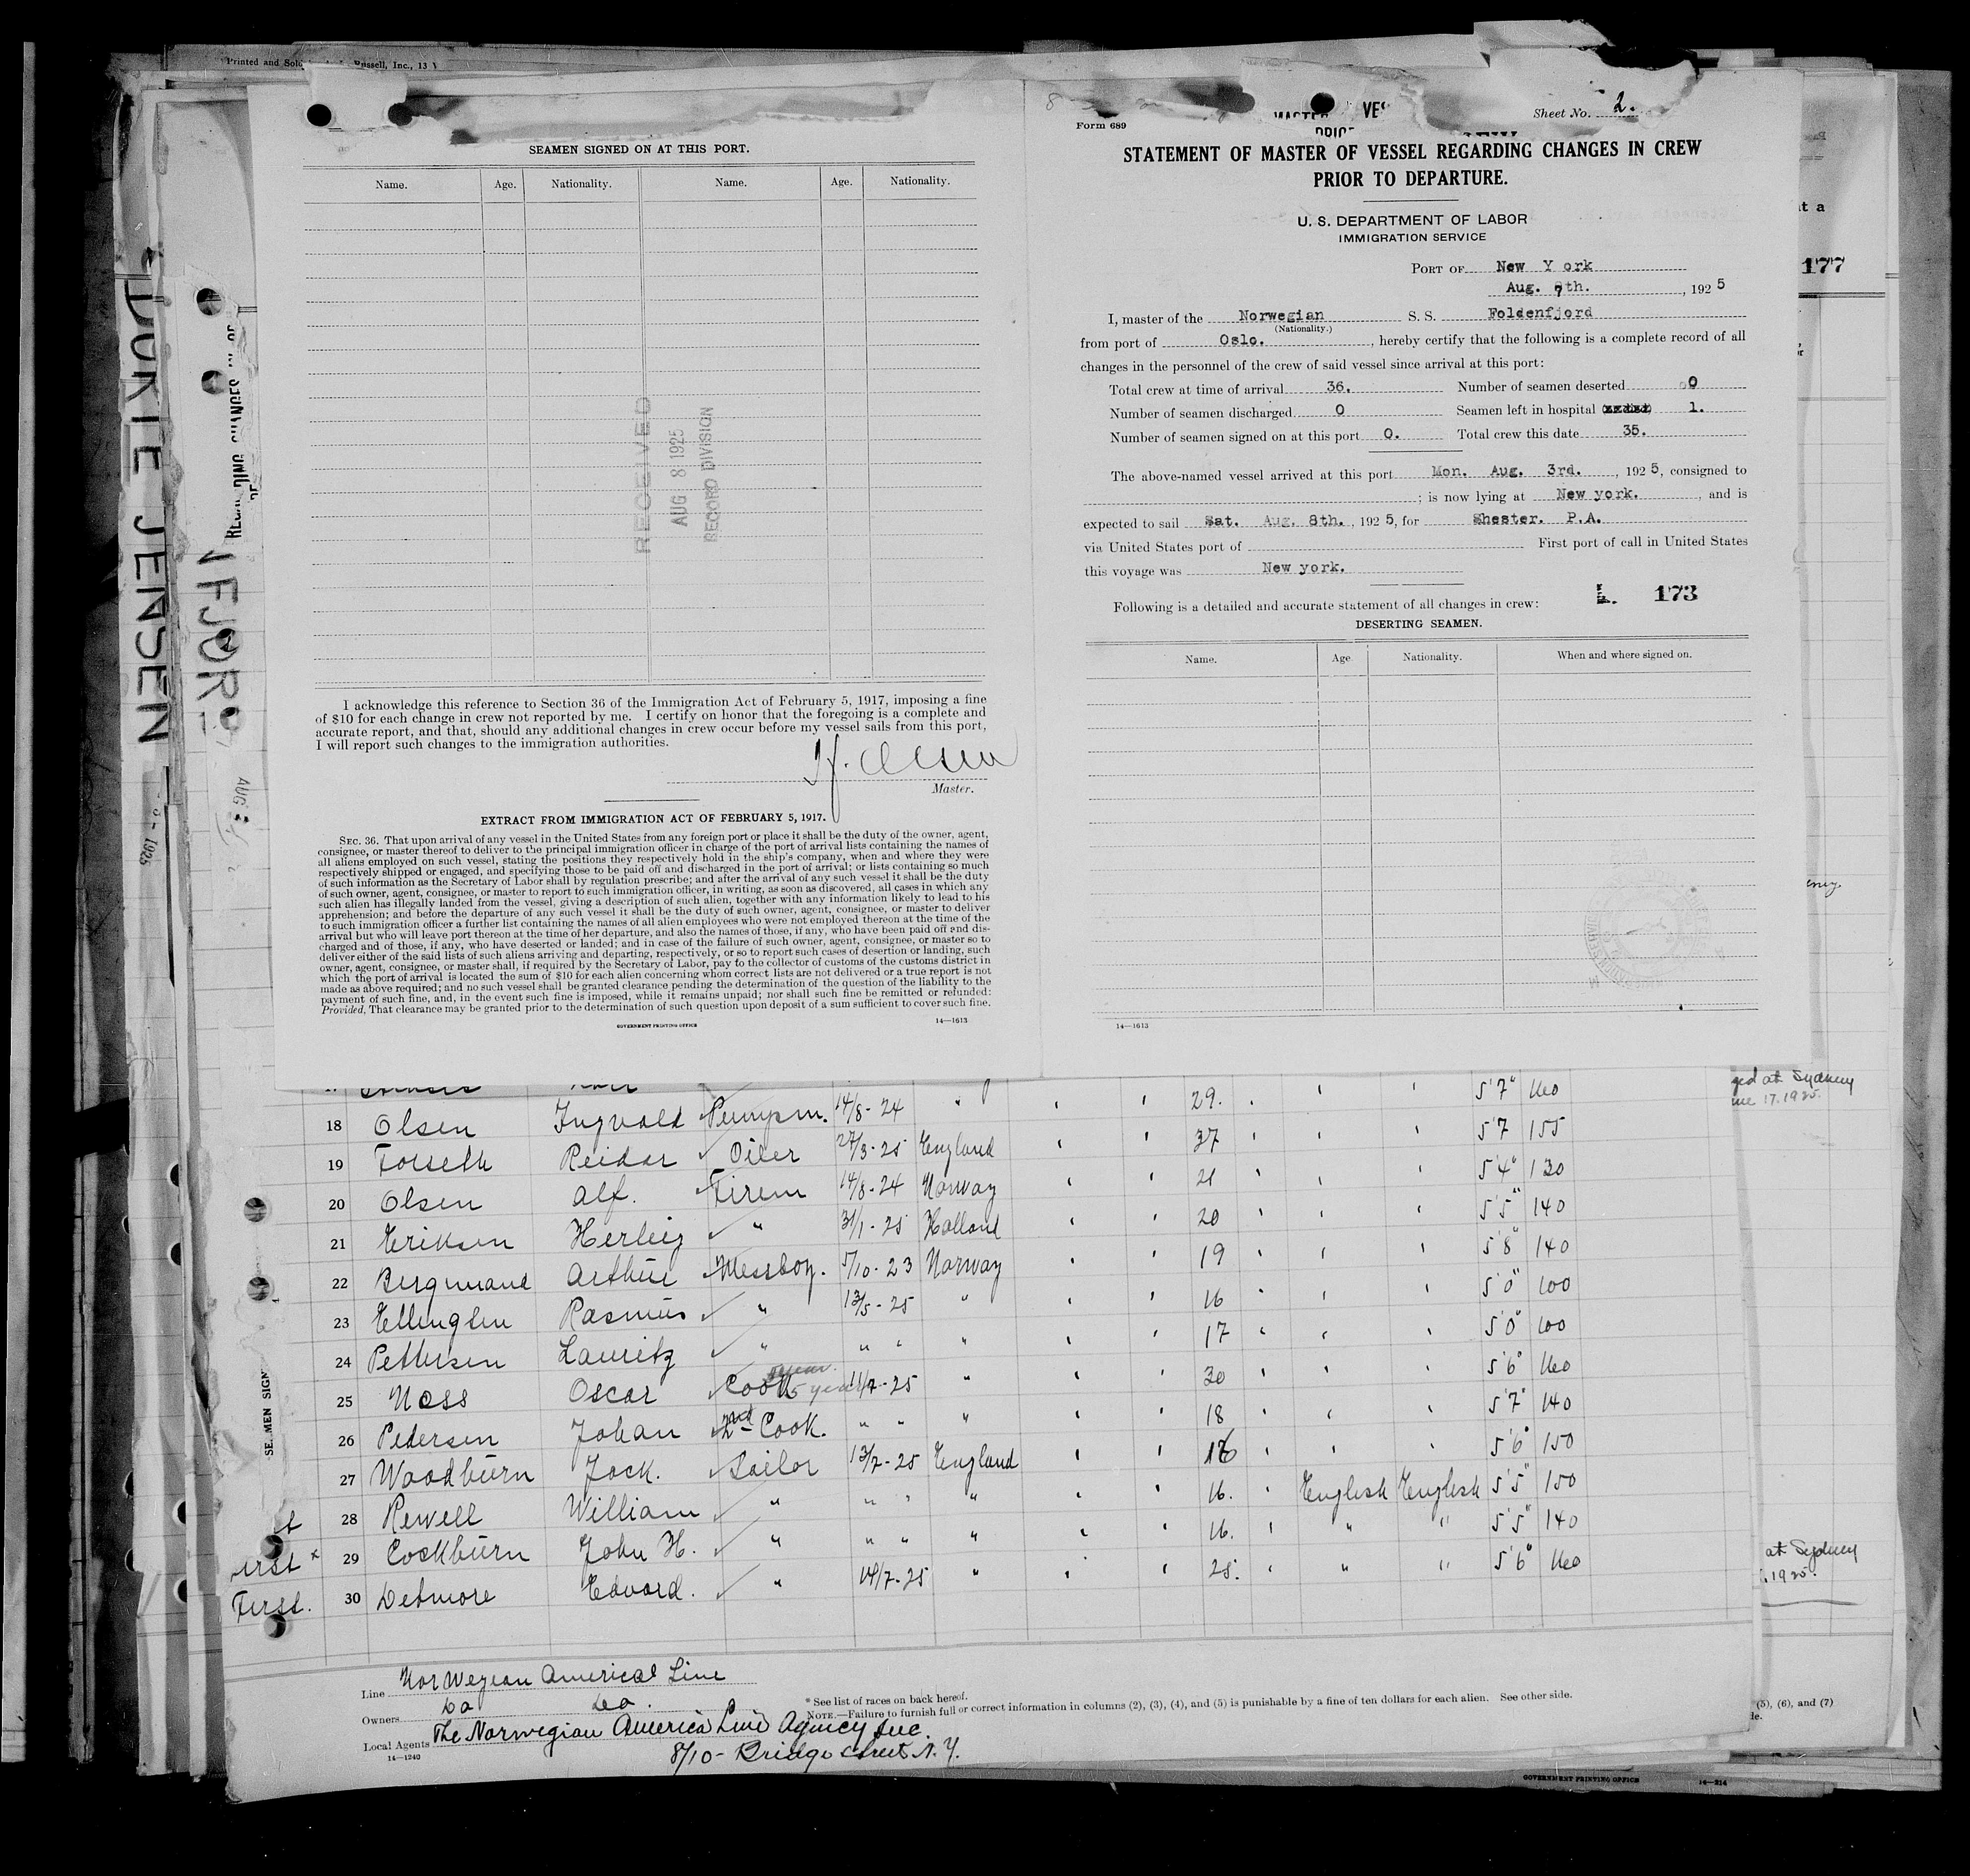 Printed and Sold Russell, Inc., 13
SEAMEN SIGNED ON AT THIS PORT.
Name. Age. Nationality. Name. Age. Nationality.
RECEIVED
AUG 8 1925
RECORD DIVISION
I acknowledge this reference to Section 36 of the Immigration Act of February 5, 1917, imposing a fine
of $10 for each change in crew not reported by me. I certify on honor that the foregoing is a complete and
accurate report, and that, should any additional changes in crew occur before my vessel sails from this port,
I will report such changes to the immigration authorities.
H. Olsen
Master.
EXTRACT FROM IMMIGRATION ACT OF FEBRUARY 5, 1917.
SEC. 36. That upon arrival of any vessel in the United States from any foreign port or place it shall be the duty of the owner, agent,
consignee, or master thereof to deliver to the principal immigration officer in charge of the port of arrival lists containing the names of
all aliens employed on such vessel, stating the positions they respectively hold in the ship's company, when and where they were
respectively shipped or engaged, and specifying those to be paid off and discharged in the port of arrival; or lists containing so much
of such information as the Secretary of Labor shall by regulation prescribe; and after the arrival of any such vessel it shall be the duty
of such owner, agent, consignee, or master to report to such immigration officer, in writing, as soon as discovered, all cases in which any
such alien has illegally landed from the vessel, giving a description of such alien, together with any information likely to lead to his
apprehension; and before the departure of any such vessel it shall be the duty of such owner, agent, consignee, or master to deliver
to such immigration officer a further list containing the names of all alien employees who were not employed thereon at the time of the
arrival but who will leave port thereon at the time of her departure, and also the names of those, if any, who have been paid off and dis-
charged and of those, if any, who have deserted or landed; and in case of the failure of such owner, agent, consignee, or master so to
deliver either of the said lists of such aliens arriving and departing, respectively, or so to report such cases of desertion or landing, such
owner, agent, consignee, or master shall, if required by the Secretary of Labor, pay to the collector of customs of the customs district in
which the port of arrival is located the sum of $10 for each alien concerning whom correct lists are not delivered or a true report is not
made as above required; and no such vessel shall be granted clearance pending the determination of the question of the liability to the
payment of such fine, and, in the event such fine is imposed, while it remains unpaid; nor shall such fine be remitted or refunded:
Provided, That clearance may be granted prior to the determination of such question upon deposit of a sum sufficient to cover such fine.
GOVERNMENT PRINTING OFFICE 14—1613
Form 689
Sheet No. 2.
STATEMENT OF MASTER OF VESSEL REGARDING CHANGES IN CREW
PRIOR TO DEPARTURE.
U. S. DEPARTMENT OF LABOR
IMMIGRATION SERVICE
PORT OF New Y ork
Aug. 7th. , 192 5
I, master of the Norwegian S. S. Foldenfjord
(Nationality.)
from port of Oslo. , hereby certify that the following is a complete record of all
changes in the personnel of the crew of said vessel since arrival at this port:
Total crew at time of arrival 36. Number of seamen deserted 0
Number of seamen discharged 0 Seamen left in hospital 1.
Number of seamen signed on at this port 0. Total crew this date 35.
The above-named vessel arrived at this port Mon. Aug. 3rd. , 192 5, consigned to
; is now lying at New york. , and is
expected to sail Sat. Aug. 8th. , 192 5, for Shester. P.A.
via United States port of First port of call in United States
this voyage was New york.
L. 173
Following is a detailed and accurate statement of all changes in crew:
DESERTING SEAMEN.
Name. Age Nationality. When and where signed on.
14—1613
177
JENSEN
29. 5'7" 160
18 Olsen Ingvald Pumpm. 14/8-24 " 37 5'7 155
19 Torseth Reidar Oiler 27/3-25 England 21 5'4" 130
20 Olsen Alf. Firem 14/8-24 Norway 20 5'5" 140
21 Eriksen Herleig " 31/1-25 Holland 19 5'8" 140
22 Bergmand Arthur Messboy. 5/10-23 Norway 16 5'0" 100
23 Ellingsen Rasmus " 13/5-25 " 17 5'0" 100
24 Pettersen Lauritz " " " " 30 5'6" 160
25 Ness Oscar Cook 5 year 11/7-25 " 18 5'7" 140
26 Pedersen Johan 2nd Cook. " " " 16 5'6" 150
27 Woodburn Jock. Sailor 13/7-25 England 16. English English 5'5" 150
28 Rewell William " " " " 16. " " 5'5" 140
29 Cockburn John H. " " " " 25. " " 5'6" 160
First. 30 Detmore Edvard. " 14/7-25 "
at Sydney
17.1925.
at Sydney
.1925.
Line Norwegian Americal Line
Owners Do Do.
Local Agents The Norwegian America Line Agency Inc.
8/10- Bridge street N.Y.
14—1240
* See list of races on back hereof.
NOTE.—Failure to furnish full or correct information in columns (2), (3), (4), and (5) is punishable by a fine of ten dollars for each alien. See other side.
(5), (6), and (7)
GOVERNMENT PRINTING OFFICE 14—214